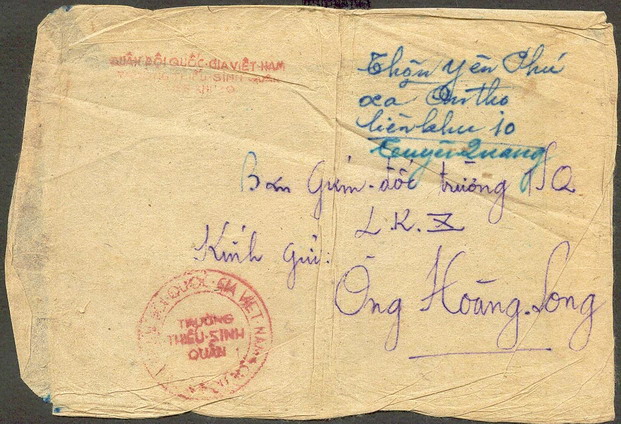 QUÂN ĐỘI QUỐC-GIA VIỆT-NAM
Thôn Yên Phú
liên khu 10
Tuyên Quang
Ban Giám-đốc trường TSQ
L.K.X
Kính gửi:
Ông Hoàng-Long
QUỐC-GIA VIỆT NAM
TRƯỜNG
THIẾU-SINH
QUÂN